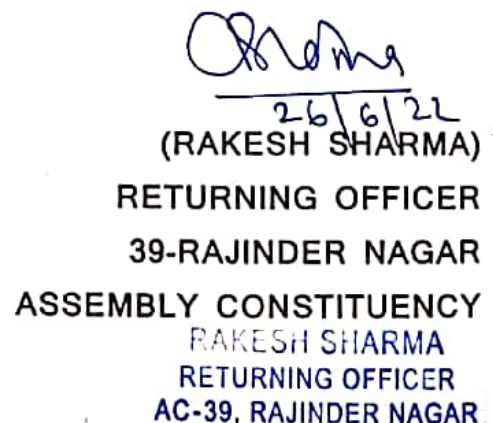 Sharma
26/6/22
(RAKESH SHARMA)
RETURNING OFFICER
39-RAJINDER NAGAR
ASSEMBLY CONSTITUENCY
RAKESH SHARMA
RETURNING OFFICER
AC-39, RAJINDER NAGAR